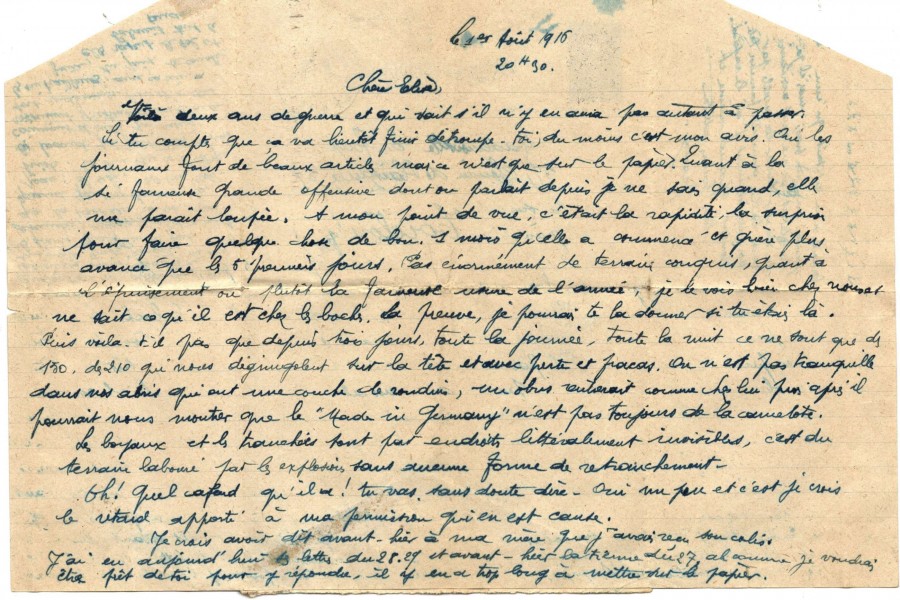 le 1er Août 1916
20H30.
Chère Elise,
Voilà deux ans de guerre et qui sait s'il n'y en aura pas autant à passer.
Si tu comptes que ça va bientôt finir détrompe-toi, du moins c'est mon avis. Oui les
journaux font de beaux articles mais ce n'est que sur le papier. Quant à la
si fameuse grande offensive dont on parlait depuis je ne sais quand, elle
me parait loupée. A mon point de vue, c'était la rapidité, la surprise
pour faire quelque chose de bon. 1 mois qu'elle a commencé et guère plus
avancé que les 5 premiers jours. Pas énormément de terrain conquis, quant à
l'épuisement ou plutôt la fameuse usure de l'armée, je le vois bien chez nous et
ne sait ce qu'il est chez les boches. La preuve, je pourrais te la donner si tu étais là.
Puis voila-t'il pas que depuis trois jours, toute la journée, toute la nuit ce ne sont que des
150. de 210 qui nous dégringolent sur la tête et avec perte et fracas. On n'est pas tranquille
dans nos abris qui ont une couche de rondins, un obus rentrerait comme chez lui puis après il
pourrait nous montrer que le "Made in Germany" n'est pas toujours de la camelote.
Les boyaux et les tranchées sont par endroits littéralement invisibles, c'est du
terrain labouré par les explosions sans aucune forme de retranchement-
Oh! Quel cafard qu'il a! tu vas sans doute dire- Oui un peu et c'est je crois
le retard apporté à ma permission qui en est cause.
Je crois avoir dit avant-hier à ma mère que j'avais reçu son colis.
J'ai eu aujourd'hui ta lettre du 28.29 et avant-hier la tienne du 27, al comme je voudrais
être près de toi pour y répondre, il y en a trop long à mettre sur le papier.